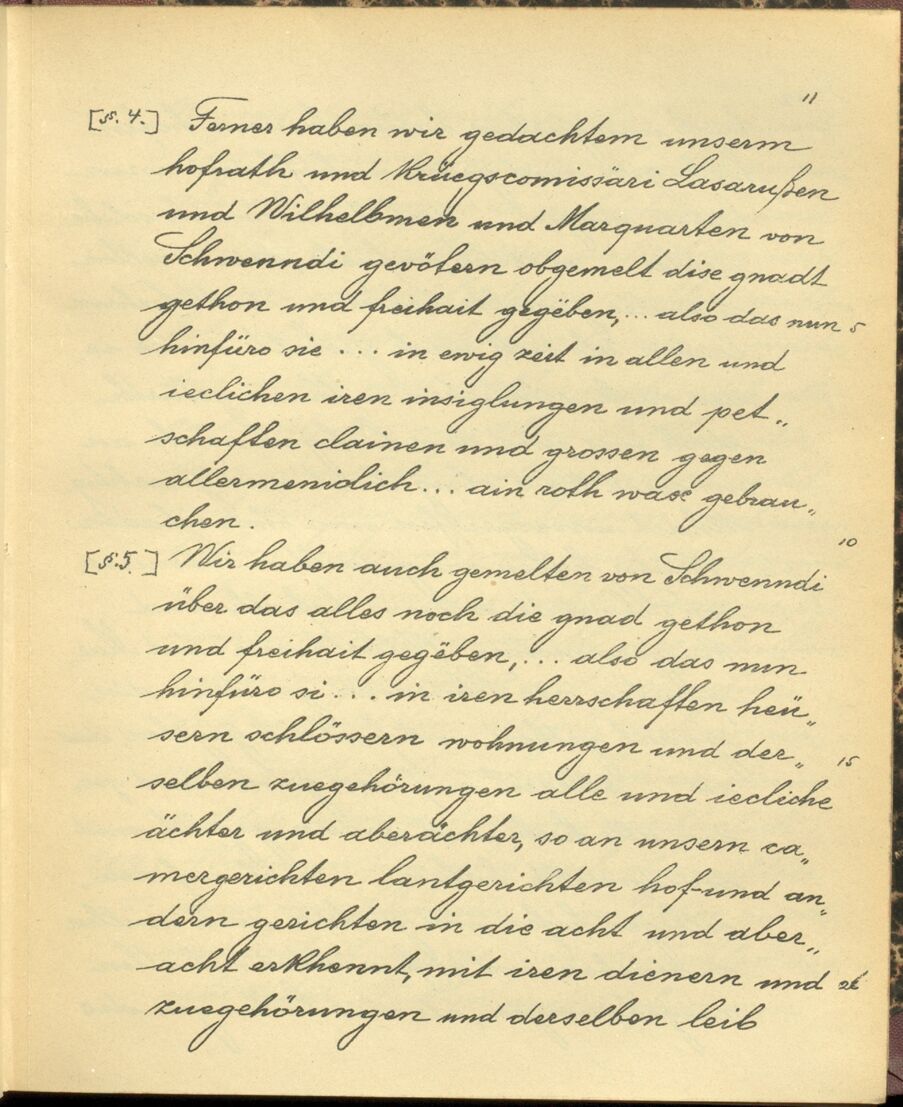 11
[§. 4.] Ferner haben wir gedachtem unserm
hofrath und Krüegscomissäri Lasarußen
und Wilhelbmen und Marquarten von
Schwenndi gevötern obgemelt dise gnadt
gethon und freihait gegëben,... also das nun 5
hinfüro sie ... in ewig zeit in allen und
ieclichen iren insiglungen und pet„
schaften clainen und grossen gegen
allermenidlich... ain roth wax gebrau„
chen. 10
[§. 5.] Wir haben auch gemelten von Schwenndi
über das alles noch die gnad gethon
und freihait gegëben,... also das nun
hinfüro si ... in iren herrschaften heü„
sern schlössern wohnungen und der„ 15
selben zuegehörungen alle und iecliche
ächter und aberächter, so an unsern ca„
mergerichten lantgerichten hof-und an„
dern gerichten in die acht und aber„
acht erkhennt, mit iren dienern und 20
zuegehörungen und derselben leib